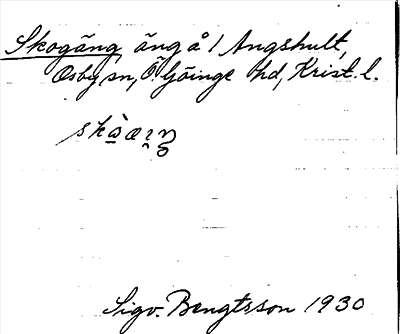 Skogäng, äng å 1 Angshult,
Osby sn, Ö Göinge hd, Krist. l.
Sigv. Bengtsson 1930